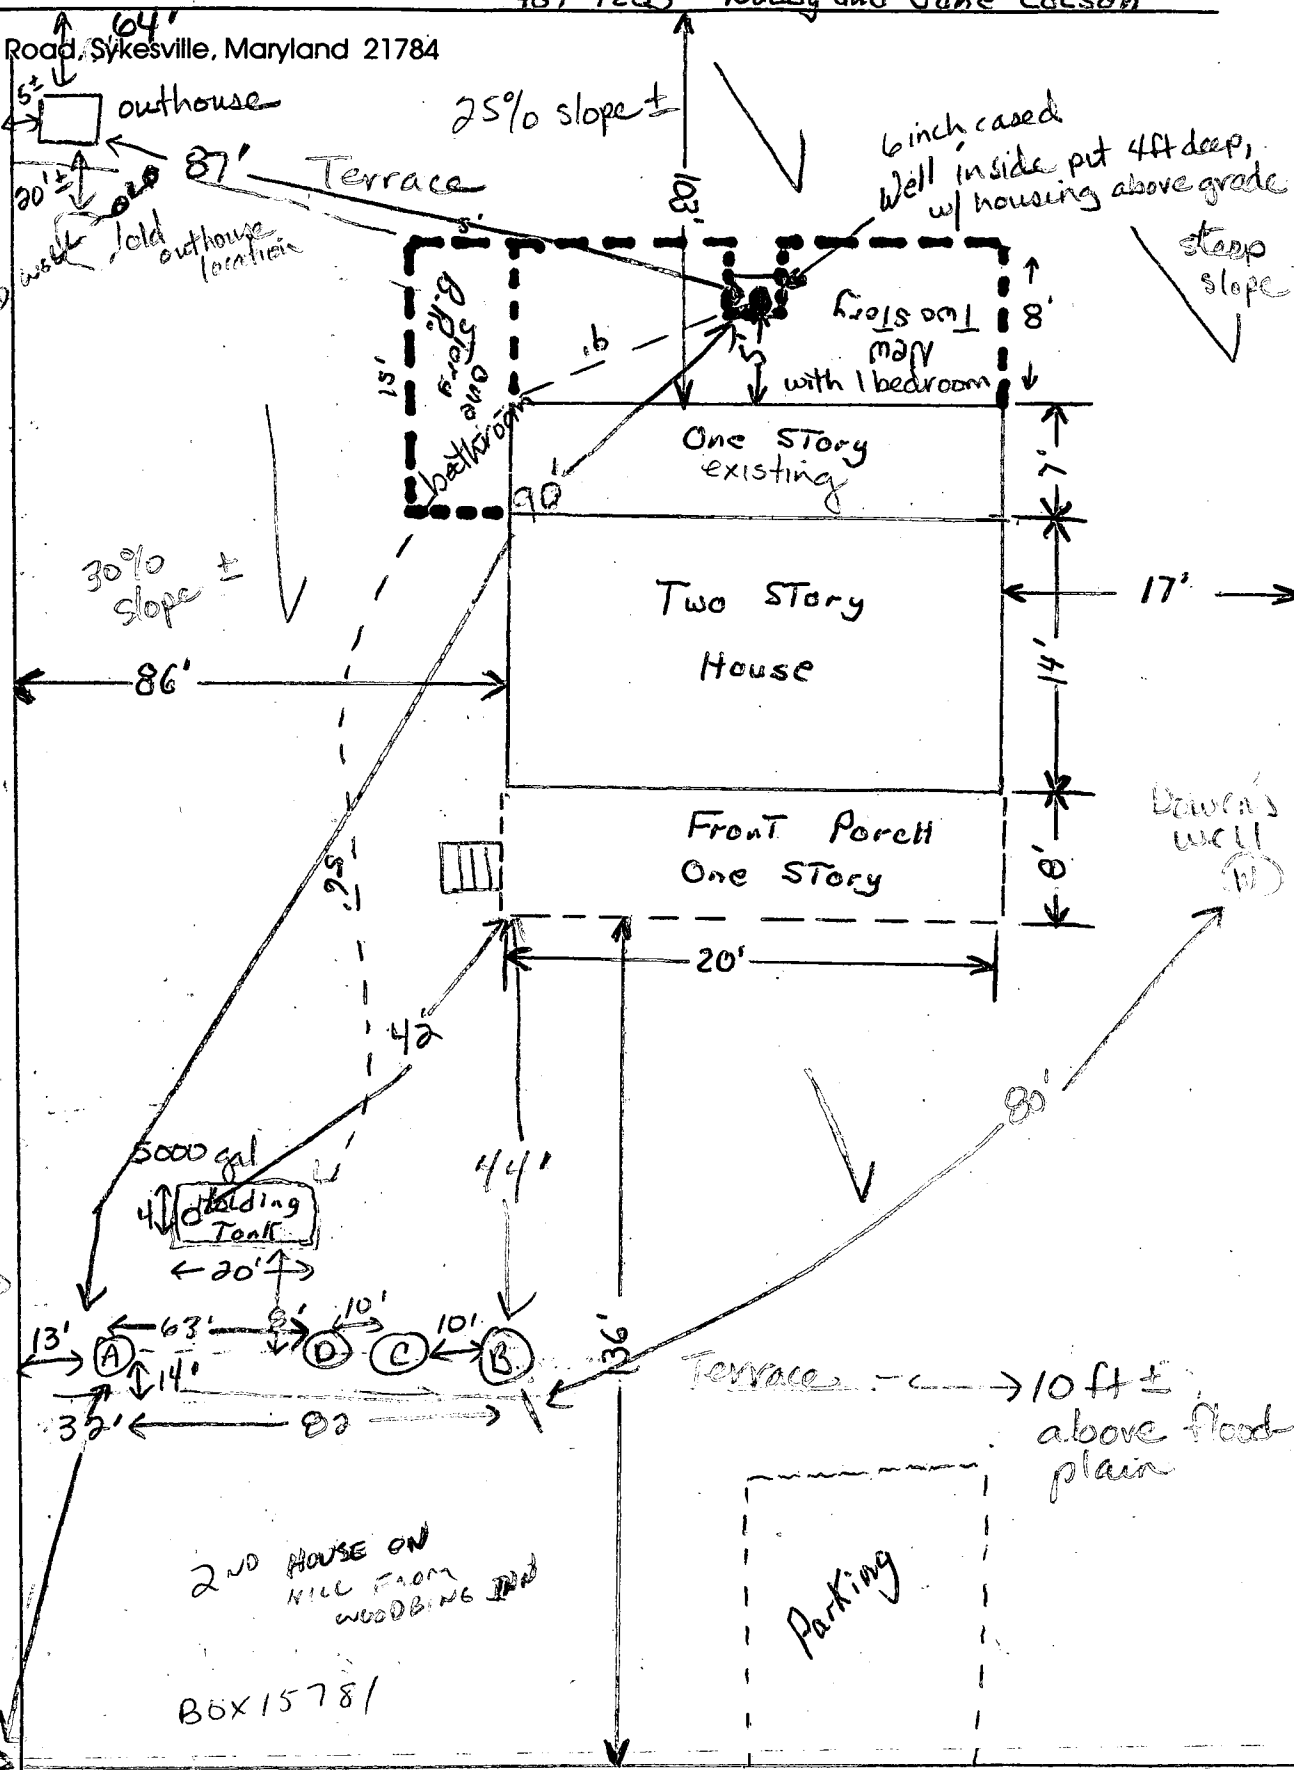 Jane Colson
64'
Road, Sykesville, Maryland 21784
5±
outhouse
25% slope ±
103'
6 inch cased
Well inside put 4ft deep,
w/ housing above grade
steep
slope
87'
Terrace
20'±
old
outhouse
location
5'
15'
One
Story
B.R.
bathroom
9'
5'
New
Two Story
with 1 bedroom
8'
One Story
existing
7'
90'
30%
slope ±
Two Story
House
17'
86'
14'
56'
Front Porch
One Story
8'
well
W
20'
42
80'
5000 gal
44'
4
Holding
Tank
20'
8'
136'
13'
A
63'
D
10'
C
10'
B
14'
32'
82
Terrace
10 ft ±
above flood
plain
2ND HOUSE ON
HILL FROM
WOODBINE INN
Parking
BOX 15781